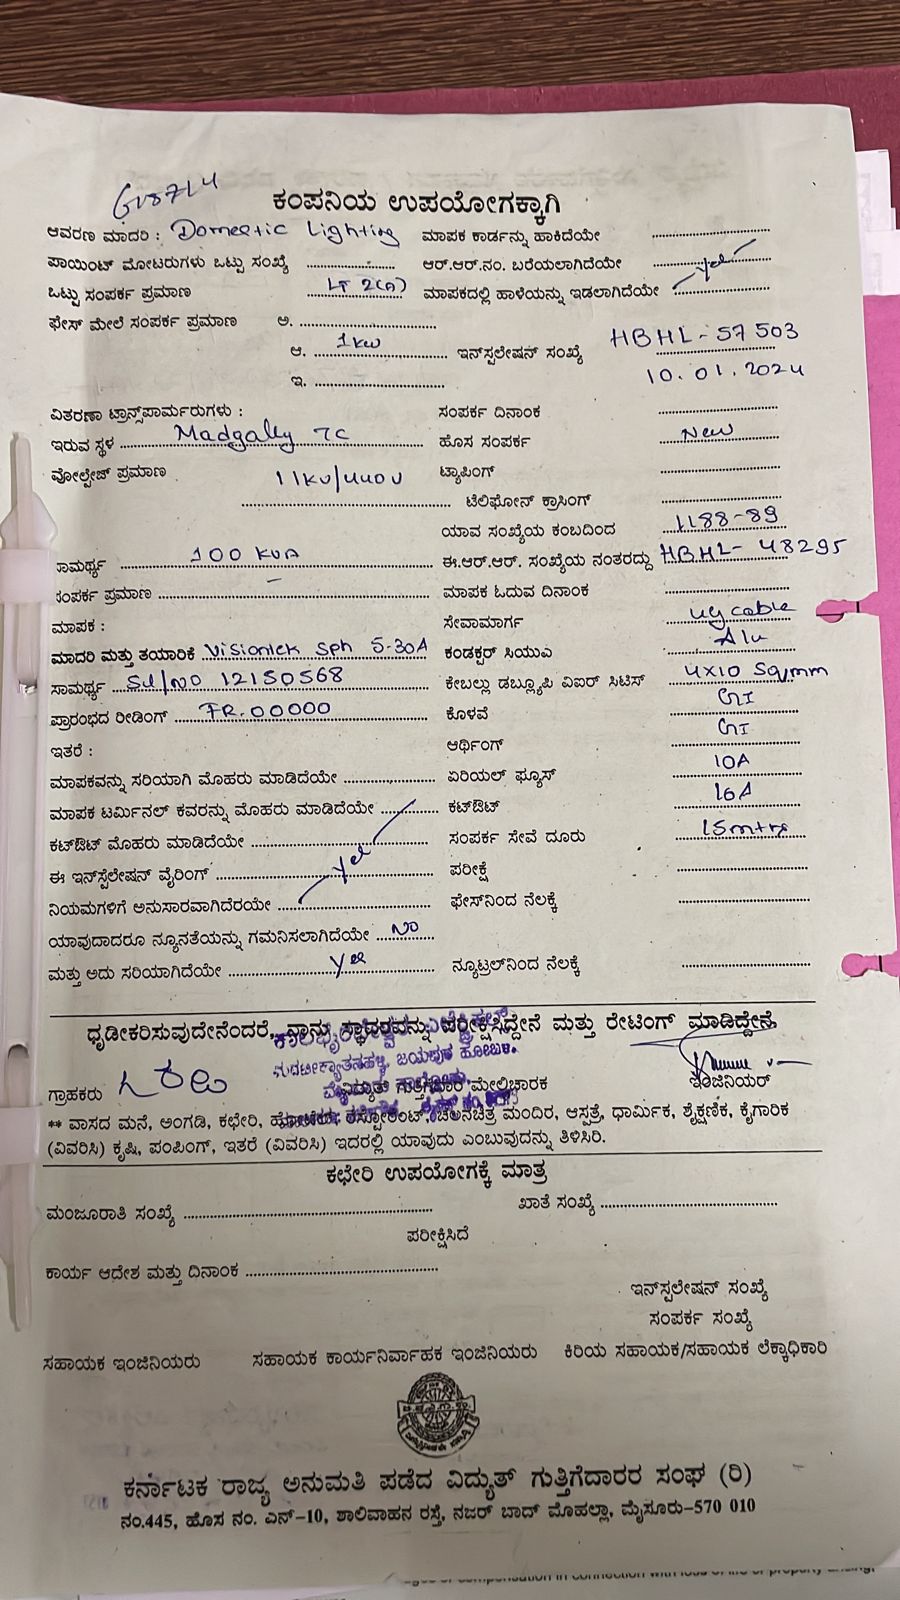 618714
ಕಂಪನಿಯ ಉಪಯೋಗಕ್ಕಾಗಿ
ಆವರಣ ಮಾದರಿ : Domestic Lighting ಮಾಪಕ ಕಾರ್ಡನ್ನು ಹಾಕಿದೆಯೇ
ಪಾಯಿಂಟ್ ಮೋಟರುಗಳು ಒಟ್ಟು ಸಂಖ್ಯೆ ಆರ್.ಆರ್.ನಂ. ಬರೆಯಲಾಗಿದೆಯೇ yes
ಒಟ್ಟು ಸಂಪರ್ಕ ಪ್ರಮಾಣ LT 2(a) ಮಾಪಕದಲ್ಲಿ ಹಾಳೆಯನ್ನು ಇಡಲಾಗಿದೆಯೇ
ಫೇಸ್ ಮೇಲೆ ಸಂಪರ್ಕ ಪ್ರಮಾಣ ಅ.
ಆ. 1kw ಇನ್‌ಸ್ಟಲೇಷನ್ ಸಂಖ್ಯೆ HBHL-57503
ಇ. 10.01.2024
ವಿತರಣಾ ಟ್ರಾನ್ಸ್‌ಪಾರ್ಮರುಗಳು : ಸಂಪರ್ಕ ದಿನಾಂಕ
ಇರುವ ಸ್ಥಳ Madgally TC ಹೊಸ ಸಂಪರ್ಕ New
ವೋಲ್ಟೇಜ್ ಪ್ರಮಾಣ 11kv/440v ಟ್ಯಾಪಿಂಗ್
ಟೆಲಿಫೋನ್ ಕ್ರಾಸಿಂಗ್
ಯಾವ ಸಂಖ್ಯೆಯ ಕಂಬದಿಂದ 1188-89
ಸಾಮರ್ಥ್ಯ 100 KVA ಈ.ಆರ್.ಆರ್. ಸಂಖ್ಯೆಯ ನಂತರದ್ದು HBHL-48295
ಸಂಪರ್ಕ ಪ್ರಮಾಣ - ಮಾಪಕ ಓದುವ ದಿನಾಂಕ
ಮಾಪಕ : ಸೇವಾಮಾರ್ಗ ug cable
ಮಾದರಿ ಮತ್ತು ತಯಾರಿಕೆ Visiontek Sph 5-30A ಕಂಡಕ್ಟರ್ ಸಿಯುವಿ Alu
ಸಾಮರ್ಥ್ಯ Sl/no 12150568 ಕೇಬಲ್ಲು ಡಬ್ಲ್ಯೂಪಿ ವಿಐರ್ ಸಿಟಿಸ್ 4x10 Sqmm
ಪ್ರಾರಂಭದ ರೀಡಿಂಗ್ FR.00000 ಕೊಳವೆ GI
ಇತರೆ : ಆರ್ಥಿಂಗ್ GI
ಮಾಪಕವನ್ನು ಸರಿಯಾಗಿ ಮೊಹರು ಮಾಡಿದೆಯೇ ಏರಿಯಲ್ ಫ್ಯೂಸ್ 10A
ಮಾಪಕ ಟರ್ಮಿನಲ್ ಕವರನ್ನು ಮೊಹರು ಮಾಡಿದೆಯೇ ಕಟ್‌ಔಟ್ 16A
ಕಟ್‌ಔಟ್ ಮೊಹರು ಮಾಡಿದೆಯೇ ಸಂಪರ್ಕ ಸೇವೆ ದೂರು 15mtrs
ಈ ಇನ್‌ಸ್ಟೆಲೇಷನ್ ವೈರಿಂಗ್ yes ಪರೀಕ್ಷೆ
ನಿಯಮಗಳಿಗೆ ಅನುಸಾರವಾಗಿದೆರಯೇ ಫೇಸ್‌ನಿಂದ ನೆಲಕ್ಕೆ
ಯಾವುದಾದರೂ ನ್ಯೂನತೆಯನ್ನು ಗಮನಿಸಲಾಗಿದೆಯೇ No
ಮತ್ತು ಅದು ಸರಿಯಾಗಿದೆಯೇ yes ನ್ಯೂಟ್ರಲ್‌ನಿಂದ ನೆಲಕ್ಕೆ
ಧೃಡೀಕರಿಸುವುದೇನೆಂದರೆ, ನಾನು ಸ್ಥಾವರವನ್ನು ಪರೀಕ್ಷಿಸಿದ್ದೇನೆ ಮತ್ತು ರೇಟಿಂಗ್ ಮಾಡಿದ್ದೇನೆ.
ಜಯಪುರ ಹೋಬಳಿ.
ಗ್ರಾಹಕರು ವಿದ್ಯುತ್ ಗುತ್ತಿಗೆದಾರ ಮೇಲ್ವಿಚಾರಕ ಇಂಜಿನಿಯರ್
** ವಾಸದ ಮನೆ, ಅಂಗಡಿ, ಕಛೇರಿ, ಹೋಟೆಲು, ರೆಸ್ಟೋರೆಂಟ್, ಚಲನಚಿತ್ರ ಮಂದಿರ, ಆಸ್ಪತ್ರೆ, ಧಾರ್ಮಿಕ, ಶೈಕ್ಷಣಿಕ, ಕೈಗಾರಿಕೆ
(ವಿವರಿಸಿ) ಕೃಷಿ, ಪಂಪಿಂಗ್, ಇತರೆ (ವಿವರಿಸಿ) ಇದರಲ್ಲಿ ಯಾವುದು ಎಂಬುವುದನ್ನು ತಿಳಿಸಿರಿ.
ಕಛೇರಿ ಉಪಯೋಗಕ್ಕೆ ಮಾತ್ರ
ಮಂಜೂರಾತಿ ಸಂಖ್ಯೆ ಖಾತೆ ಸಂಖ್ಯೆ
ಪರೀಕ್ಷಿಸಿದೆ
ಕಾರ್ಯ ಆದೇಶ ಮತ್ತು ದಿನಾಂಕ
ಇನ್‌ಸ್ಟಲೇಷನ್ ಸಂಖ್ಯೆ
ಸಂಪರ್ಕ ಸಂಖ್ಯೆ
ಸಹಾಯಕ ಇಂಜಿನಿಯರು ಸಹಾಯಕ ಕಾರ್ಯನಿರ್ವಾಹಕ ಇಂಜಿನಿಯರು ಕಿರಿಯ ಸಹಾಯಕ/ಸಹಾಯಕ ಲೆಕ್ಕಾಧಿಕಾರಿ
ಕರ್ನಾಟಕ ರಾಜ್ಯ ಅನುಮತಿ ಪಡೆದ ವಿದ್ಯುತ್ ಗುತ್ತಿಗೆದಾರರ ಸಂಘ (ರಿ)
ನಂ.445, ಹೊಸ ನಂ. ಎನ್-10, ಶಾಲಿವಾಹನ ರಸ್ತೆ, ನಜರ್ ಬಾದ್ ಮೊಹಲ್ಲಾ, ಮೈಸೂರು-570 010